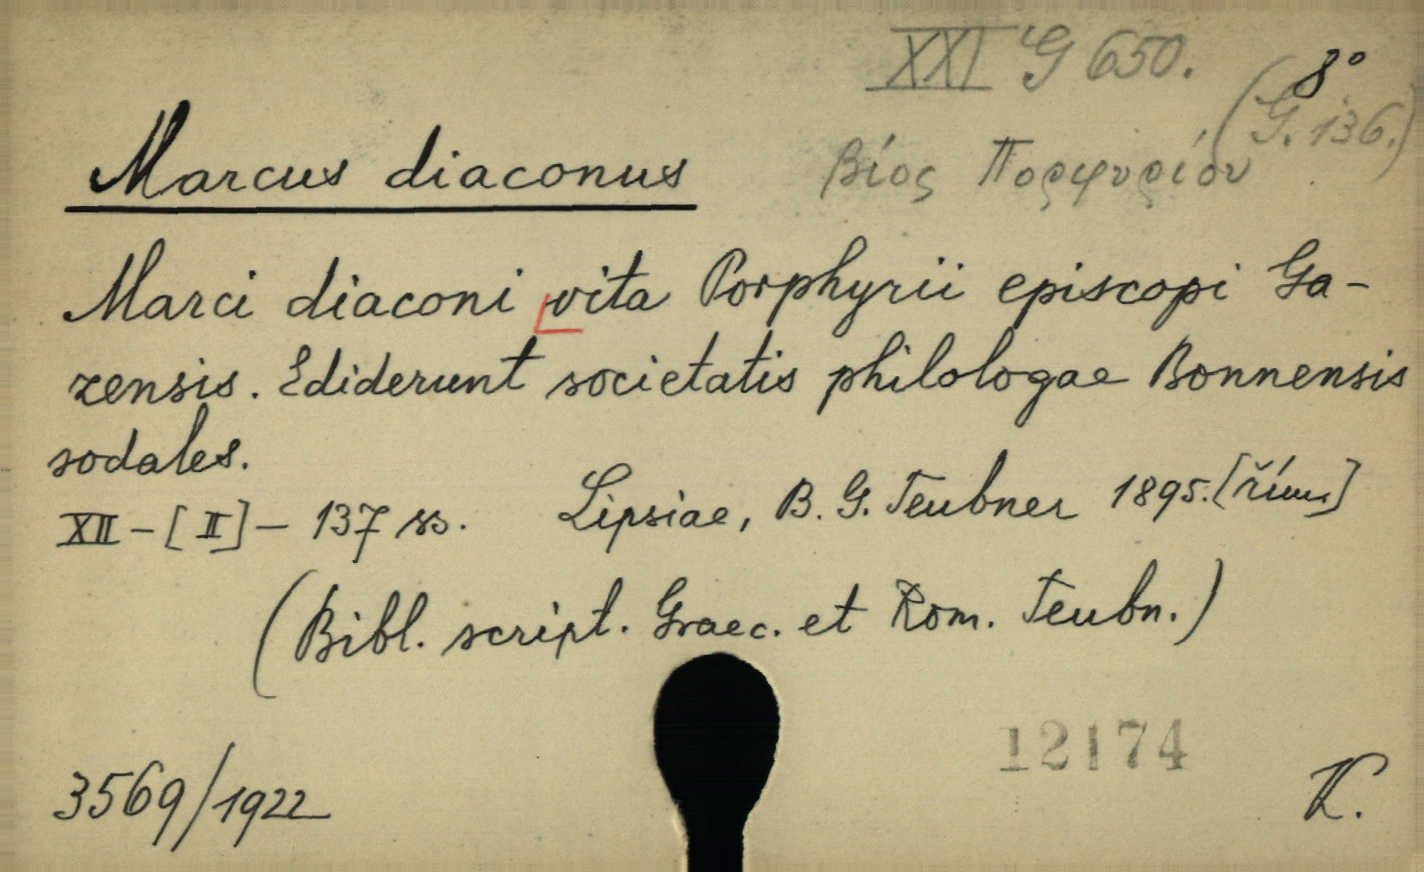 XXI G 650.
8°
(G. 136.)
Marcus diaconus
βίος Πορφυρίου
Marci diaconi vita Porphyrii episcopi Ga-
zensis. Ediderunt societatis philologae Bonnensis
sodales.
XII - [II] - 137 ss. Lipsiae, B. G. Teubner 1895. [řím]
(Bibl. script. Graec. et Rom. Teubn.)
12174
3569/1922
K.